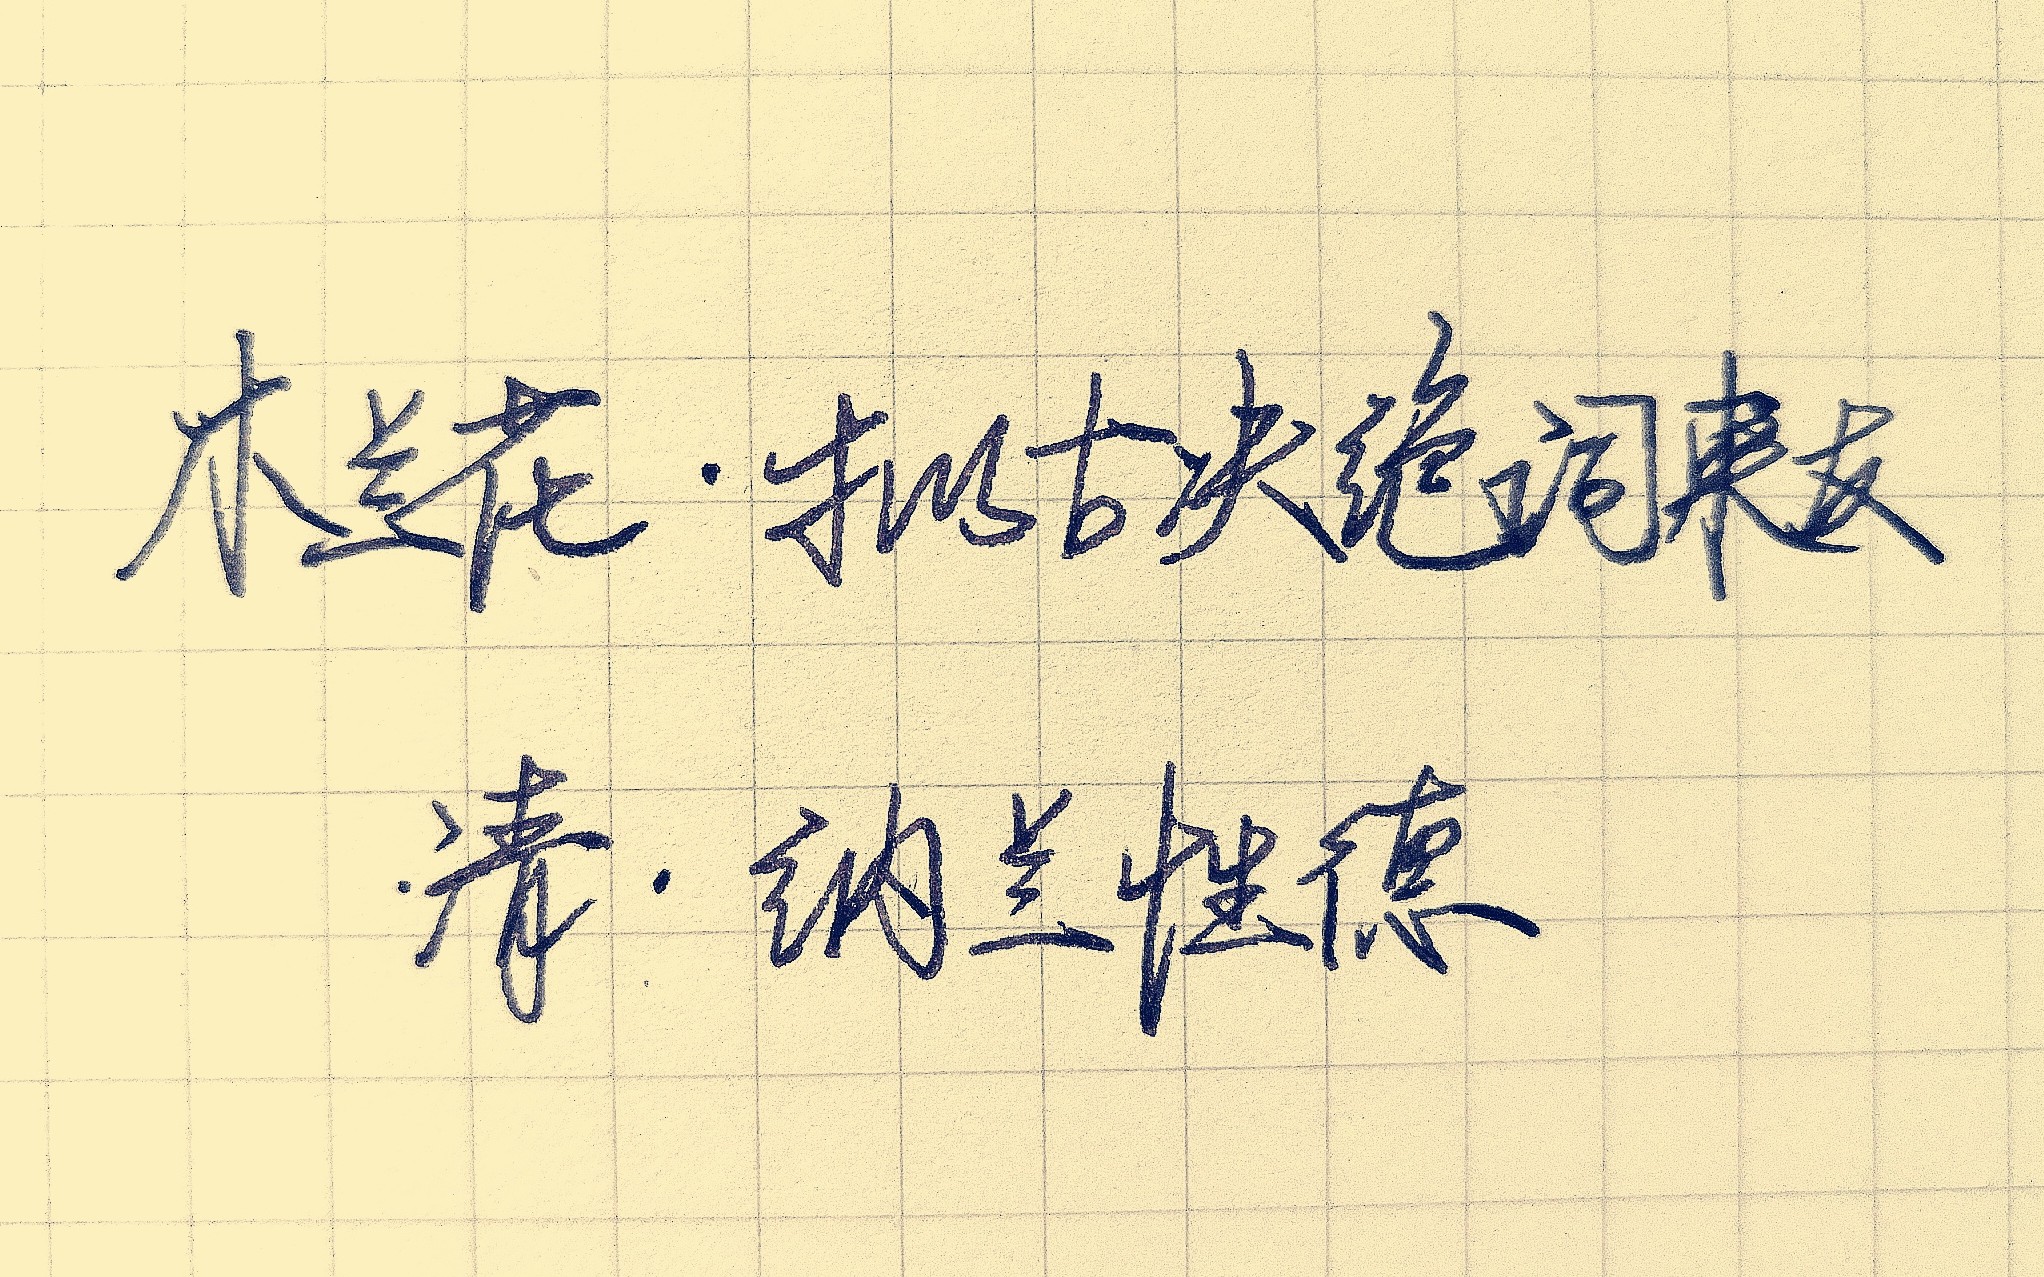 木兰花·拟古决绝词柬友
清·纳兰性德